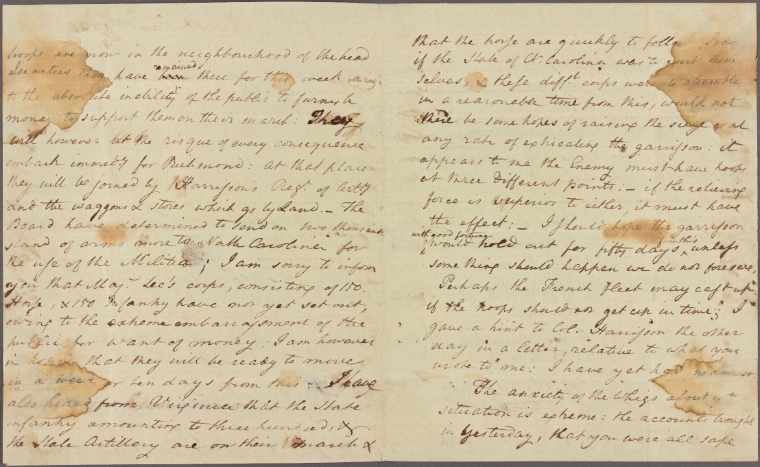 troops are now in the neighbourhood of the head
Quarters have remained there for this week owing
to the absolute inability of the public to furnish
money to support them on their march: They
will however at the risque of every consequence
embark immedy for Richmond: at that place
they will be joined by Harrison's Regt. of Arty
and the waggons & stores which go by Land. - The
Board have determined to send on two thousand
stand of arms more to North Carolina for
the use of the Militia; I am sorry to inform
you that Maj. Lee's corps, consisting of 150
Horse, & 150 Infantry have not yet set out,
owing to the extreme embarrassment of the
public for want of money. I am however
in hopes that they will be ready to move
in a week or ten days from this. I have
also heard from Virginia that the State
infantry amounting to three hundred, &
the State Artillery are on their march &
that the horse are quickly to follow. Pray
if the State of N. Carolina was to exert them
selves, & these difft. corps were to assemble
in a reasonable time from this, would not
there be some hopes of raising the siege or at
any rate of extricating the garrison: it
appears to me the Enemy must have troops
at three Different points: - if the relieving
force is superior to either it must have
the effect: - I should hope the garrison
with good fortune would hold out for fifty days unless
some thing should happen we do not foresee.
Perhaps the French fleet may cast up
if the troops should not get up in time; I
gave a hint to Col. Harrison the other
day in a letter, relative to what you
wrote to me: I have yet had no answer
The anxiety of the whigs about yr
situation is extreme: the accounts brought
in Yesterday, that you were all safe